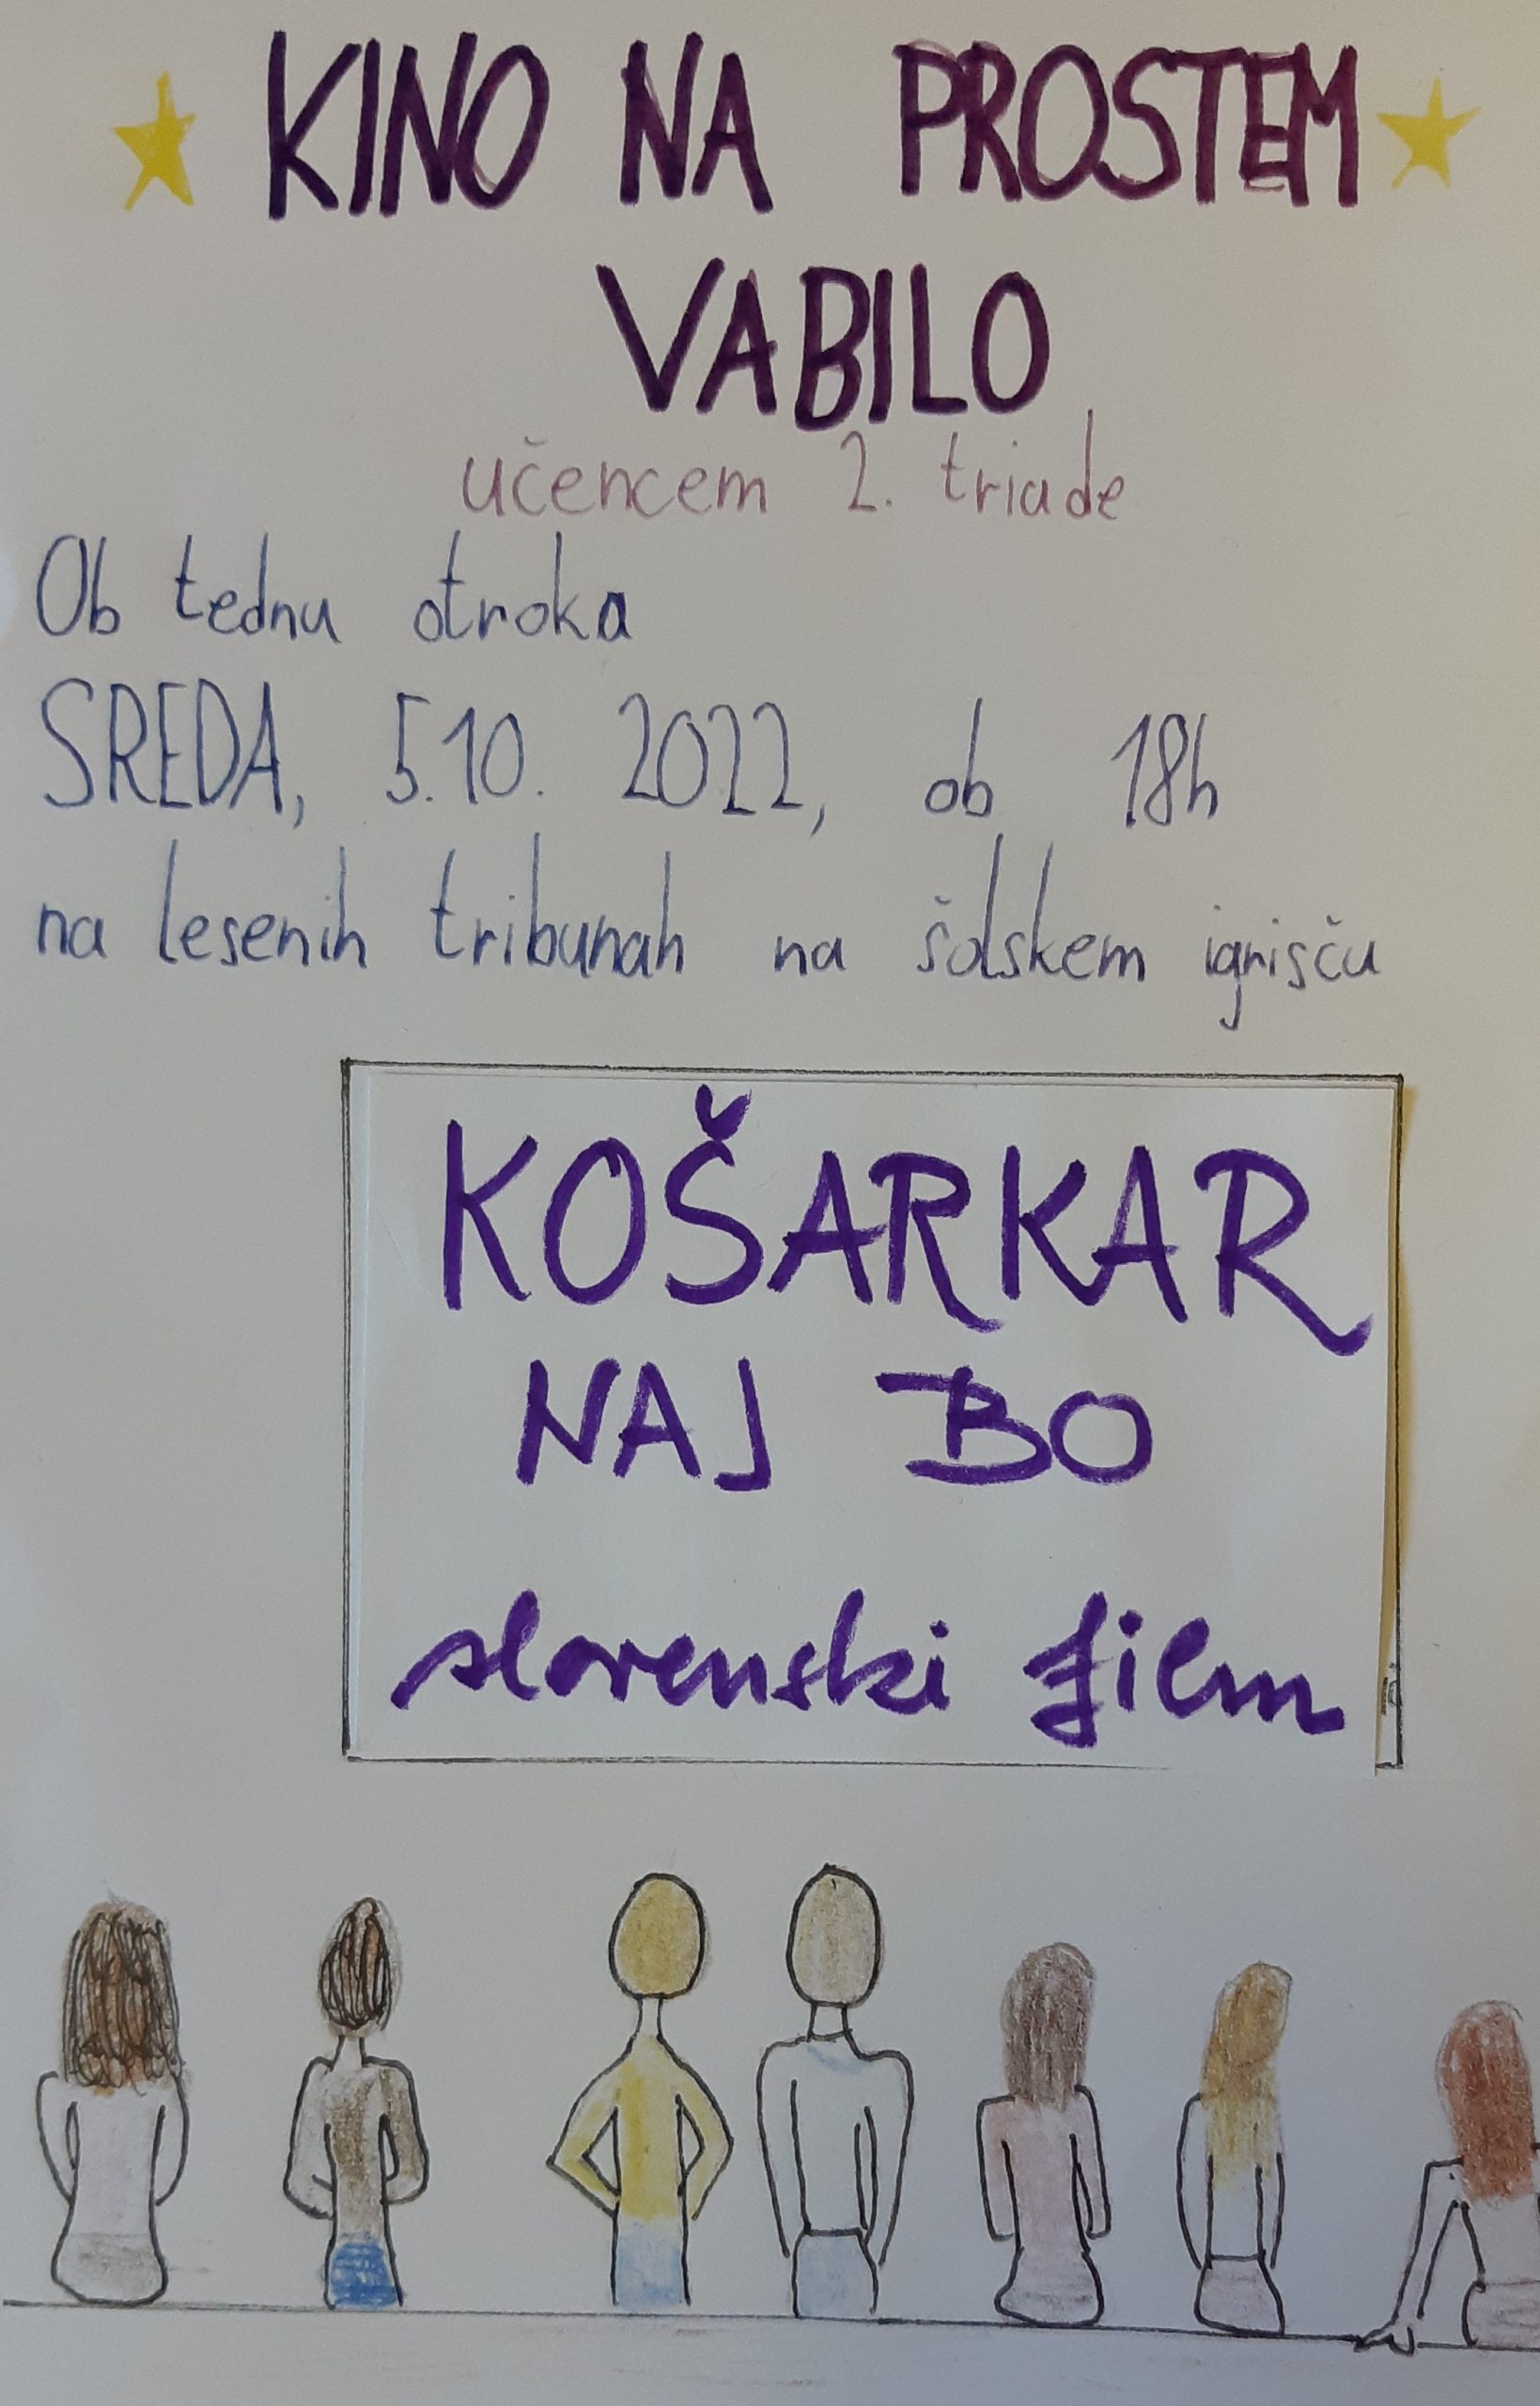 KINO NA PROSTEM
VABILO
učencem 2. triade
Ob tednu otroka
SREDA, 5.10. 2022, ob 18h
na lesenih tribunah na šolskem igrišču
KOŠARKAR
NAJ BO
slovenski film